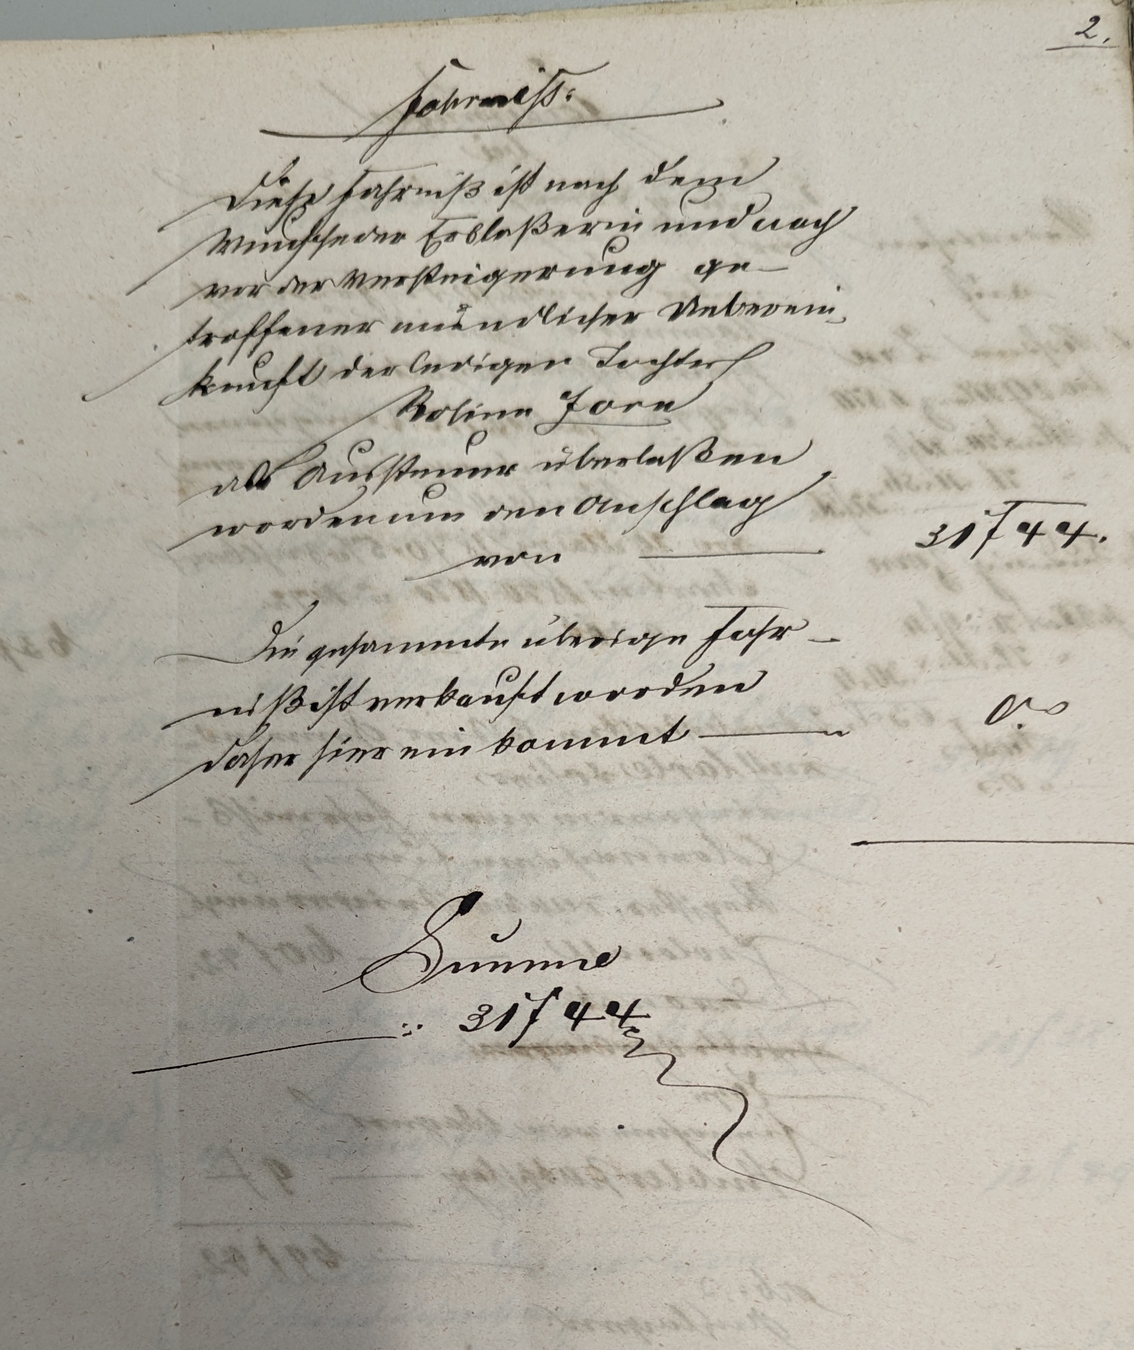 2.
Fahrniß:
Diese Fahrniß ist nach dem
Wunsche der Erblaßerin und nach
vor der Versteigerung ge-
troffener mündlicher Ueberein-
kunft der ledigen Tochter
Rosine Jora
als Aussteuer überlaßen
worden um den Anschlag
von — 31 f 44.
Die gesammte übrige Fahr-
niß ist verkauft worden
daher hier ein kommt — 0.
Summe
31 f 44